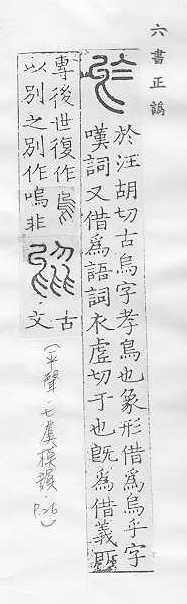 六書正譌
於汪胡切古烏字孝鳥也象形借爲烏乎字
嘆詞又借爲語詞衣虛切于也旣爲借義所
專後世復作烏
以別之別作嗚非
古
文
(平聲·七虞模韻·P.26)